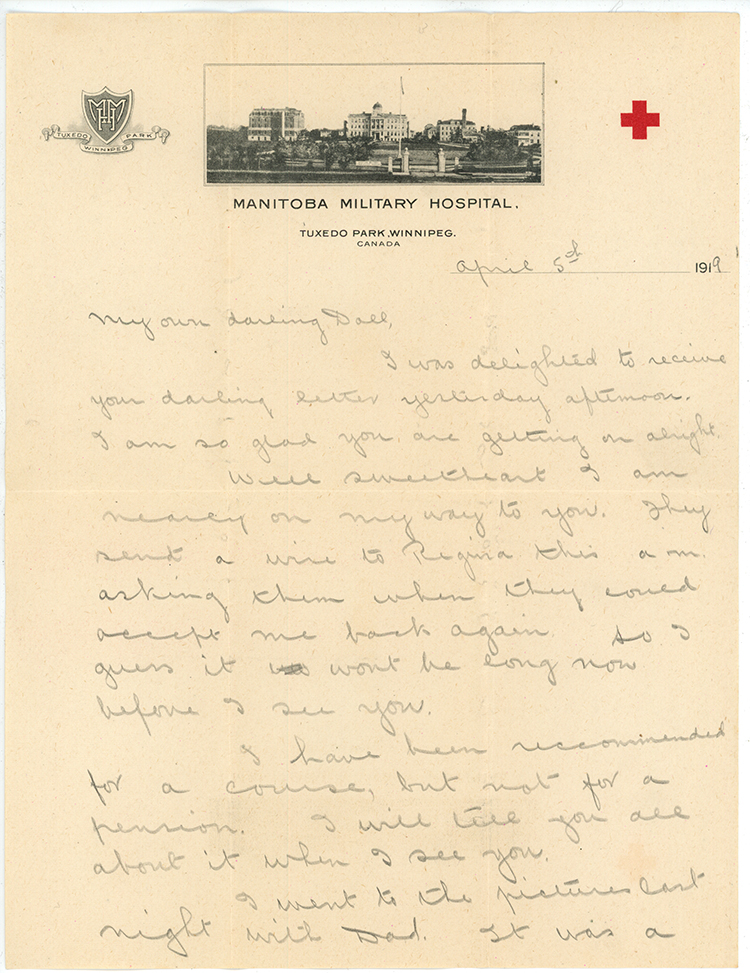 MHM
TUXEDO PARK
WINNIPEG
MANITOBA MILITARY HOSPITAL.
TUXEDO PARK, WINNIPEG.
CANADA
April 5th 1919
My own darling Doll,
I was delighted to receive
your darling letter yesterday afternoon.
I am so glad you are getting on alright.
Well sweetheart I am
nearly on my way to you. They
send a wire to Regina this a m.
asking them when they could
accept me back again so I
guess it wont be long now
before I see you.
I have been reccommended
for a course, but not for a
pension. I will tell you all
about it when I see you.
I went to the pictures last
night with Dad. It was a